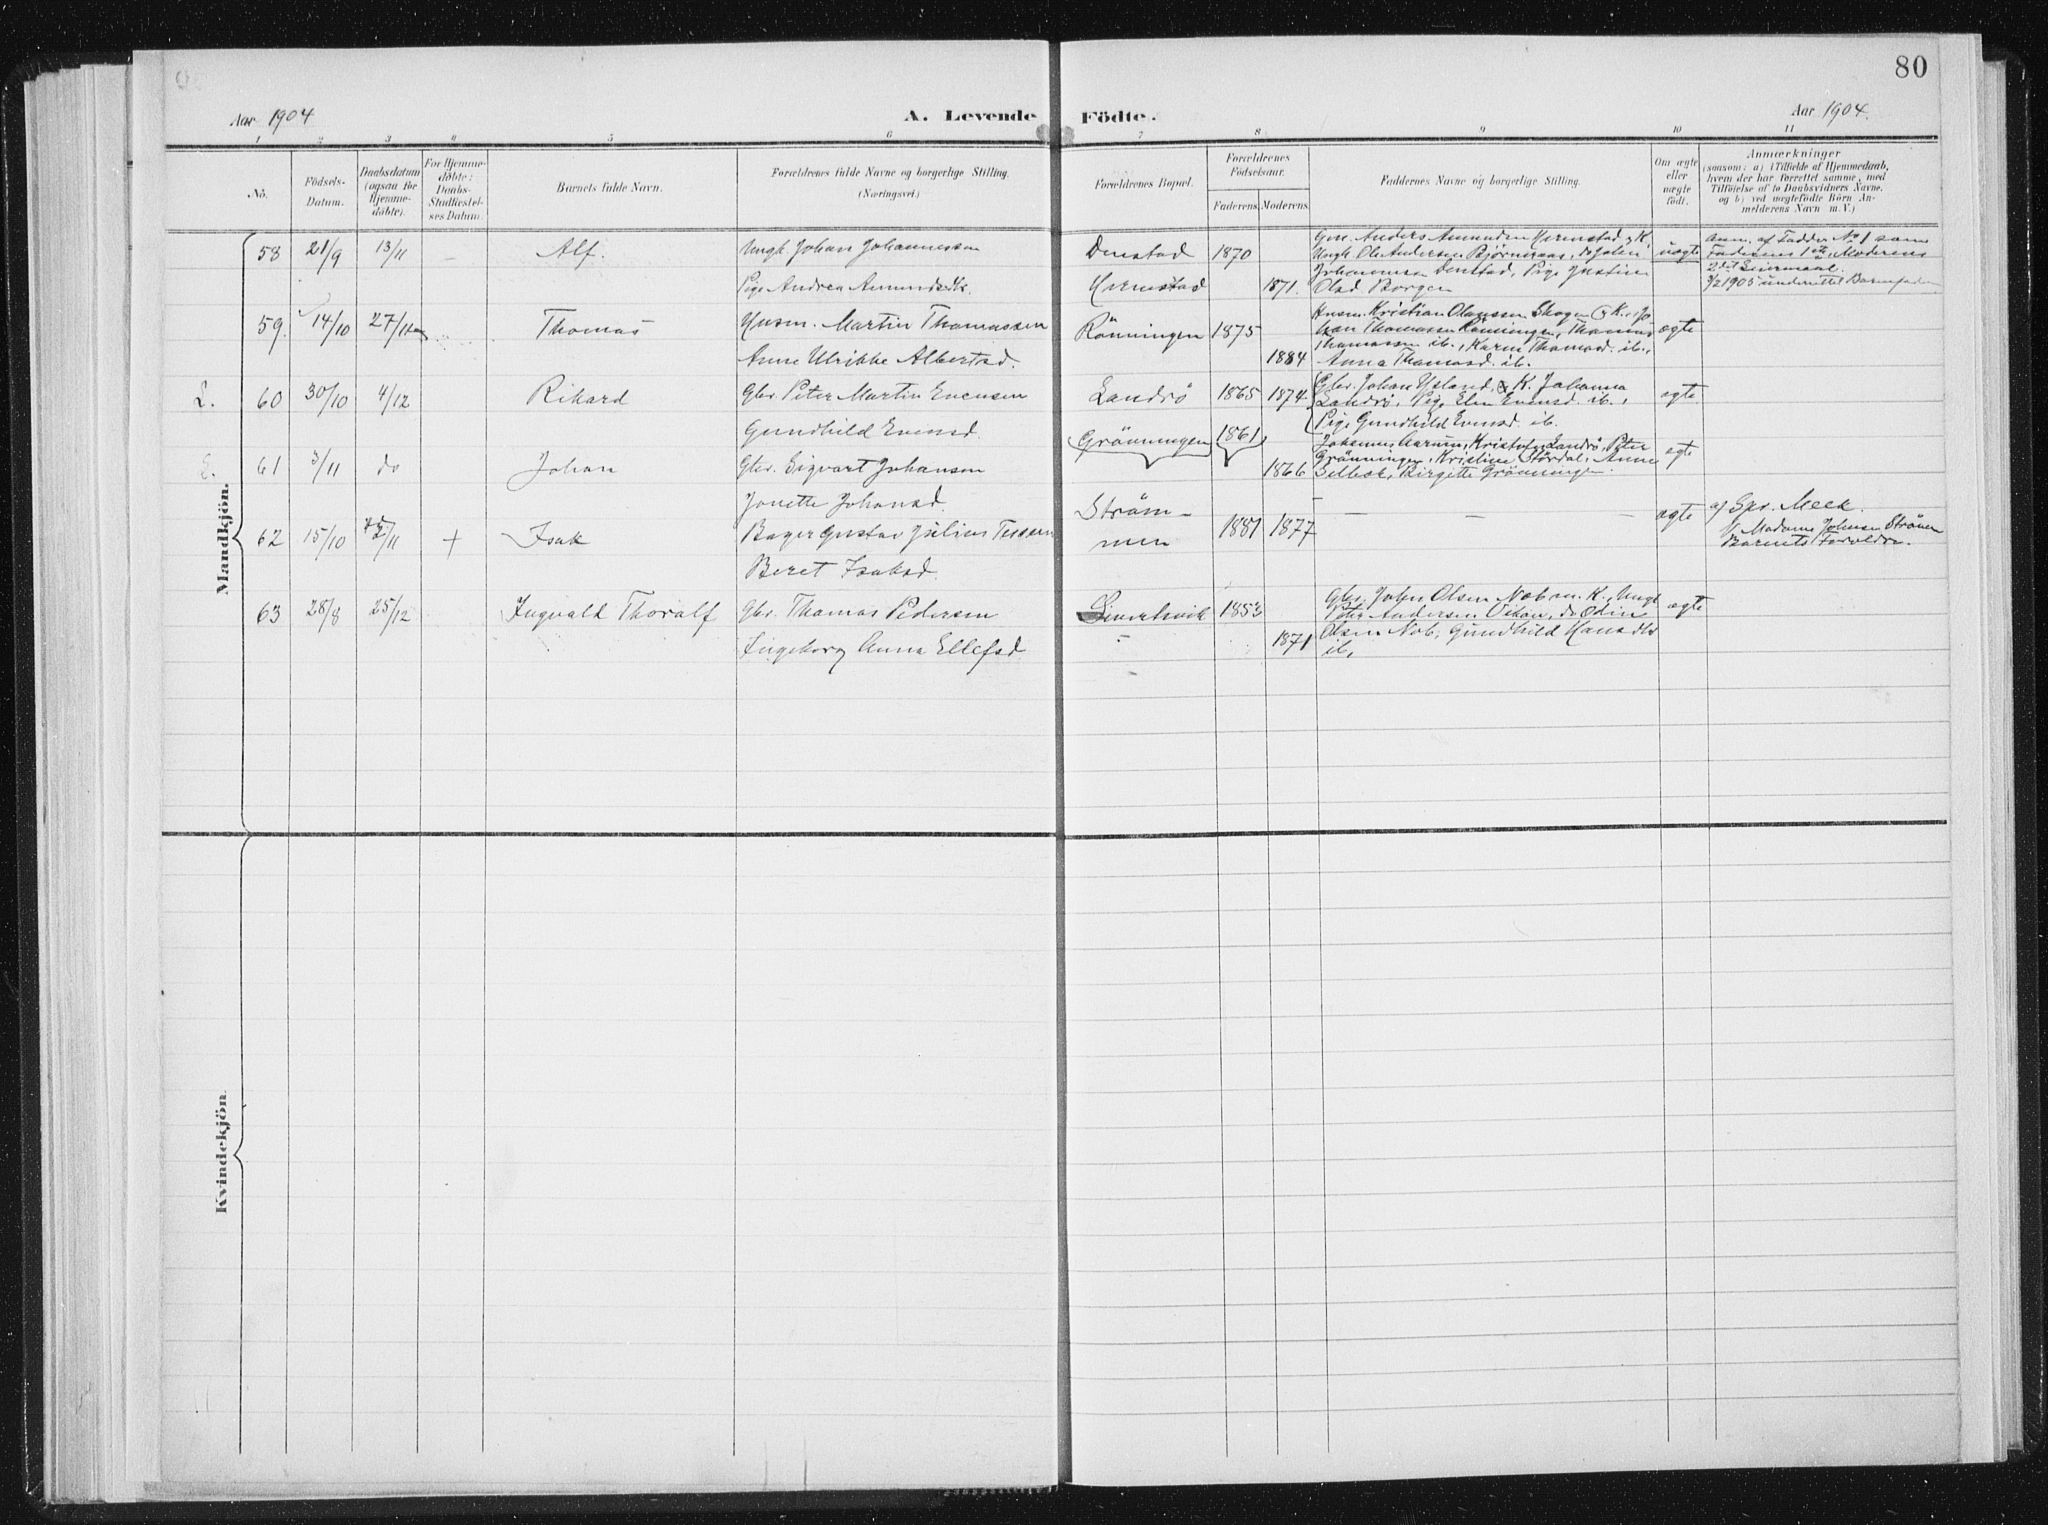 80
Aar 1904
A. Levende Födte.
Aar 1904.
1 2 3 4 5 6 7 8 9 10 11
No.
Födsels-
Datum.
Daabsdatum
(ogsaa for
Hjemme-
døbte).
For Hjemme-
døbte:
Daabs-
Stadfæstel-
ses Datum.
Barnets fulde Navn.
Forældrenes fulde Navne og borgerlige Stilling.
(Næringsvei.)
Forældrenes Bopæl.
Forældrenes
Födselsaar.
Faderens. Moderens.
Faddernes Navne og borgerlige Stilling.
Om ægte
eller
uægte
født.
Anmærkninger
(saasom: a) i Tilfælde af Hjemmedaab,
hvem der har forrettet samme, med
Tilföielse af to Daabsvidners Navne,
og b) ved uægtefödte Börn An-
melderens Navn m. V.)
Mandkjön.
58 21/9 13/11 – Alf. Ungk. Johan Johannessen
Pige Andrea Amundsdt.
Denstad 1870
Hvernstad 1871.
Gm. Anders Amundsen Hvernstad & K,
Ungk. Ole Andersen Bjørneraas, do Johan
Johannessen Denstad, Pige Justine
Olsd Borgen
uægte
Anm. af Fadder No 1 som
Faderens 1ste, Moderens
2det Leiermaal.
1/2 1905 underrettet Barnefaderen
59. 14/10 27/11 Thomas Husm. Martin Thomassen
Anne Ulrikke Albertsd.
Rönningen 1875
1884
Husm. Kristian Olaussen Skogen & K., Jo
han Thomassen Rönningen, Thomas
Thomassen ib., Karen Thomasd. ib.,
Anna Thomasd. ib.
ægte
L. 60 30/10 4/12 Rikard Gbr. Peter Martin Evensen
Gundhild Evensd.
Landrö 1865 1874.
Gbr. Johan Ysland & K. Johanna
Landrö, Pige Elen Evensd. ib.,
Pige Gundhild Evensd ib.
ægte
L. 61 3/11 do Johan Gbr. Sigvart Johansen
Jonette Johansd.
Grönningen 1861
1866
Johannes Aarum, Kristofer Landrö, Peter
Grönningen, Kristine Stördal, Anne
Selbek, Birgitte Grönningen.
ægte
62 15/10 /11 + Isak Bager Gustav Julius Tessem
Beret Isaksd.
Ström-
men
1881 1877
– – –
ægte
af Spr. Meek.
v/ Madame Johnsen Strömmen
Barnets Forældre.
63 28/8 25/12 Ingvald Thoralf Gbr. Thomas Pedersen
Ingeborg Anna Ellefsd
Leverhvik 1853
1871
Gbr. John Olsen Nob m. K., Ungk
Peter Andersen Vikan, do Odin
Olsen Nob, Gundhild Hansdtr
ib.
ægte
Kvindekjön.